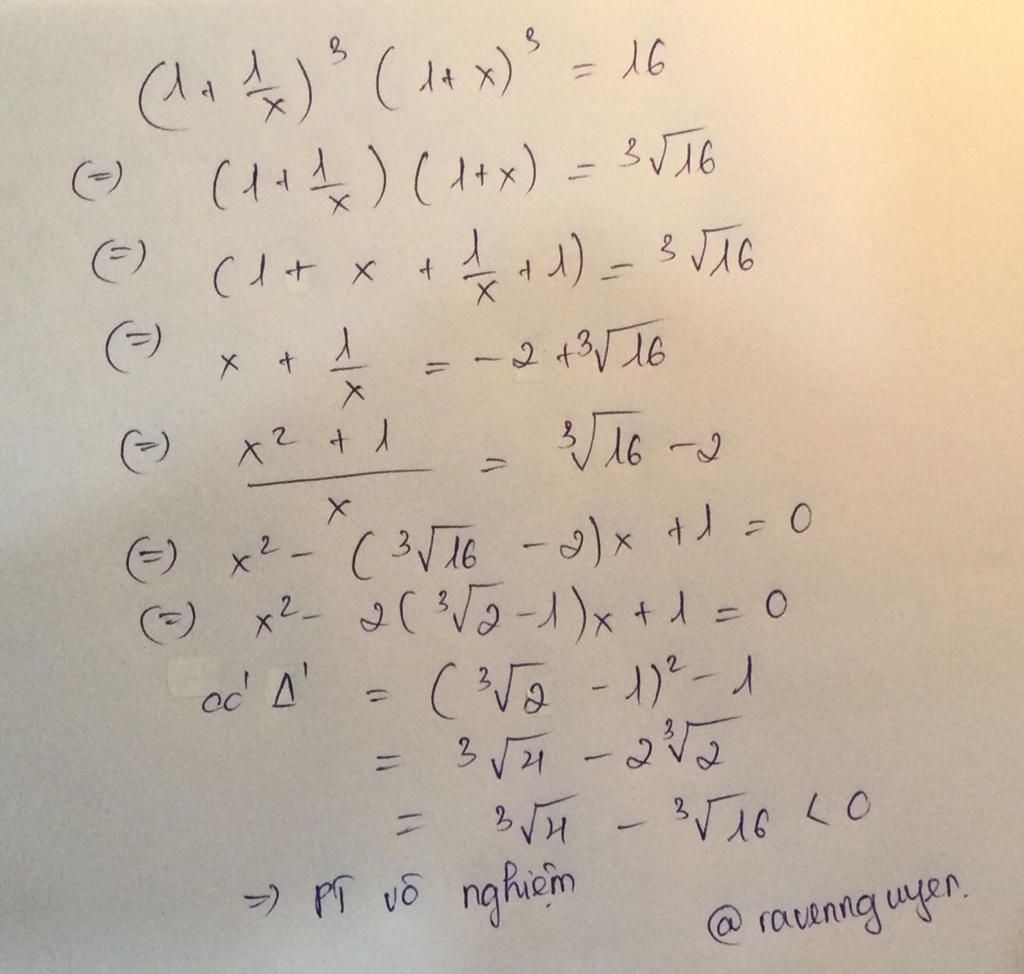 (1 + 1/x)³ (1 + x)³ = 16
(=) (1 + 1/x) (1 + x) = ³√16
(=) (1 + x + 1/x + 1) = ³√16
(=) x + 1/x = -2 + ³√16
(=) (x² + 1)/x = ³√16 - 2
(=) x² - (³√16 - 2)x + 1 = 0
(=) x² - 2(³√2 - 1)x + 1 = 0
có Δ' = (³√2 - 1)² - 1
= ³√4 - 2³√2
= ³√4 - ³√16 < 0
=) PT vô nghiệm
@ravennguyen.